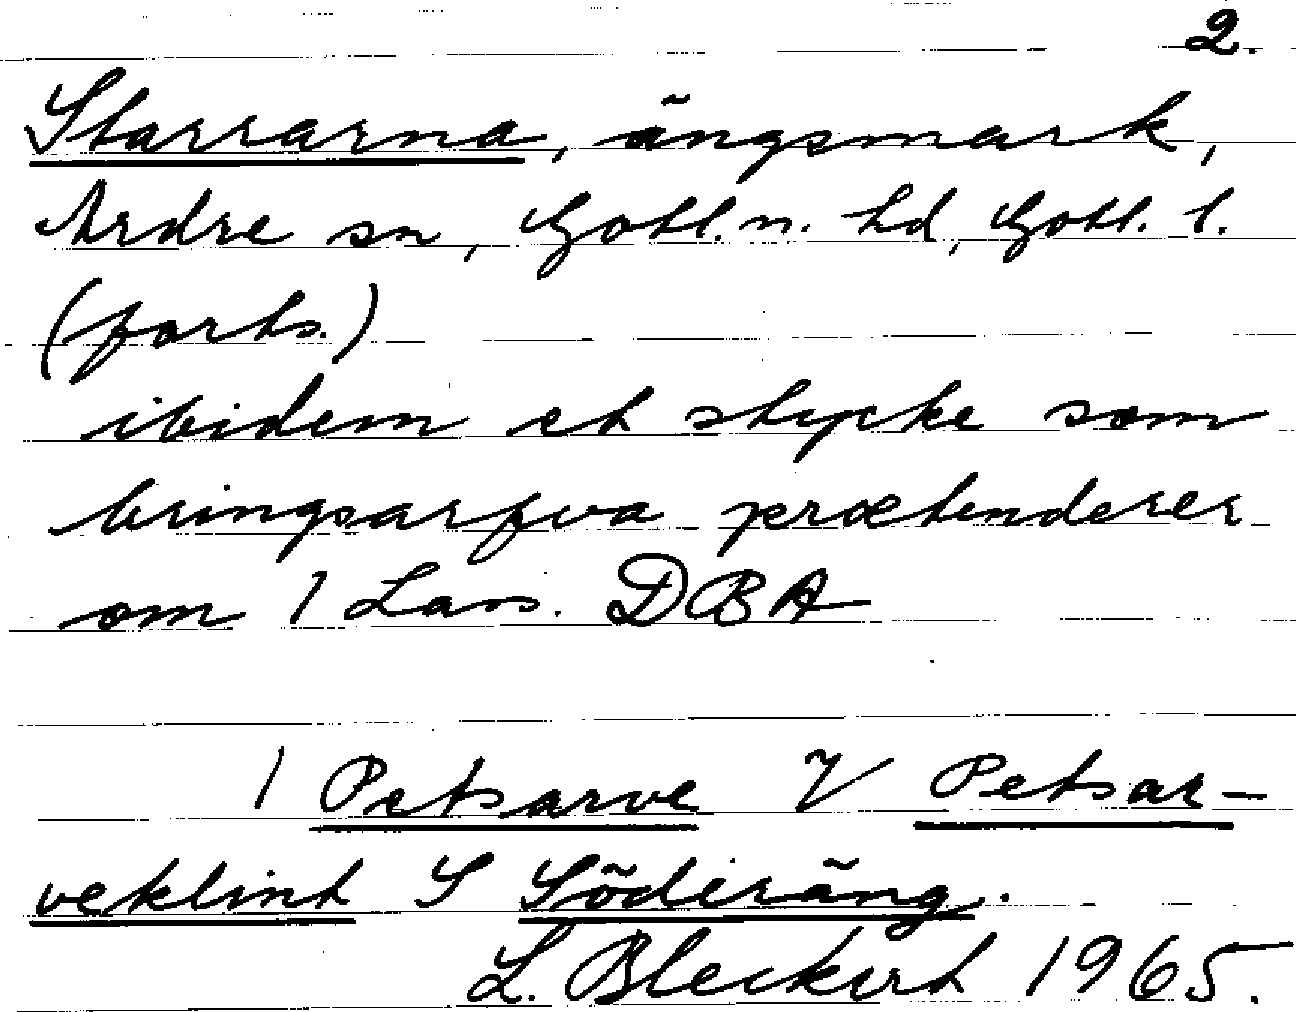 2.
Starrarna, ängsmark,
Ardre sn, Gotl. n. hd, Gotl. l.
(forts.)
ibidem et stycke som
bringsarfva prætenderer
om 1 Lass. DBA
1 Petsarve V Petsar-
veklint S Söderäng.
L. Bleckert 1965.